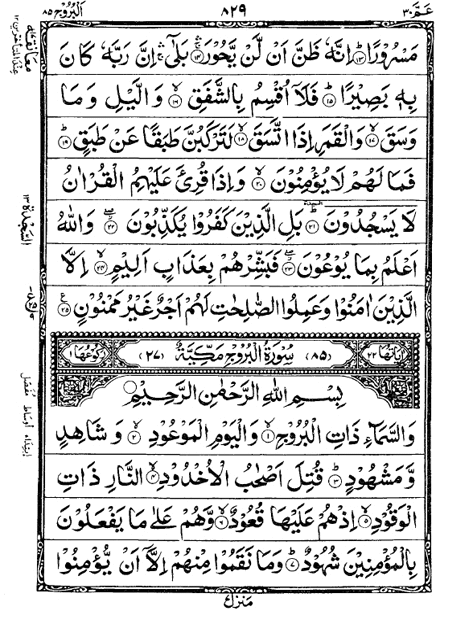 عَـمّ ٣٠
٨٢٩
البُرُوج ٨٥
مَسْرُوْرًا ؕ﴿۱۳﴾ اِنَّهٗ ظَنَّ اَنْ لَّنْ يَّحُوْرَ ۚۛ﴿۱۴﴾ بَلٰٓى ۚۛ اِنَّ رَبَّهٗ كَانَ
بِهٖ بَصِيْرًا ؕ﴿۱۵﴾ فَلَاۤ اُقْسِمُ بِالشَّفَقِ ۙ﴿۱۶﴾ وَالَّيْلِ وَمَا
وَسَقَ ۙ﴿۱۷﴾ وَالْقَمَرِ اِذَا اتَّسَقَ ۙ﴿۱۸﴾ لَتَرْكَبُنَّ طَبَقًا عَنْ طَبَقٍ ؕ﴿۱۹﴾
فَمَا لَهُمْ لَا يُؤْمِنُوْنَ ۙ﴿۲۰﴾ وَاِذَا قُرِئَ عَلَيْهِمُ الْقُرْاٰنُ
لَا يَسْجُدُوْنَ ؕ﴿۲۱﴾ بَلِ الَّذِيْنَ كَفَرُوْا يُكَذِّبُوْنَ ۖ﴿۲۲﴾ وَاللّٰهُ
اَعْلَمُ بِمَا يُوْعُوْنَ ۖ﴿۲۳﴾ فَبَشِّرْهُمْ بِعَذَابٍ اَلِيْمٍ ۙ﴿۲۴﴾ اِلَّا
الَّذِيْنَ اٰمَنُوْا وَعَمِلُوا الصّٰلِحٰتِ لَهُمْ اَجْرٌ غَيْرُ مَمْنُوْنٍ ﴿۲۵﴾
اٰيَاتُهَا ٢٢ (٨٥) سُوْرَةُ الْبُرُوْجِ مَكِّيَّةٌ (٢٧) رُكُوْعُهَا ١
بِسْمِ اللّٰهِ الرَّحْمٰنِ الرَّحِيْمِ
وَالسَّمَآءِ ذَاتِ الْبُرُوْجِ ۙ﴿۱﴾ وَالْيَوْمِ الْمَوْعُوْدِ ۙ﴿۲﴾ وَشَاهِدٍ
وَّمَشْهُوْدٍ ؕ﴿۳﴾ قُتِلَ اَصْحٰبُ الْاُخْدُوْدِ ۙ﴿۴﴾ النَّارِ ذَاتِ
الْوَقُوْدِ ۙ﴿۵﴾ اِذْ هُمْ عَلَيْهَا قُعُوْدٌ ۙ﴿۶﴾ وَّهُمْ عَلٰى مَا يَفْعَلُوْنَ
بِالْمُؤْمِنِيْنَ شُهُوْدٌ ؕ﴿۷﴾ وَمَا نَقَمُوْا مِنْهُمْ اِلَّاۤ اَنْ يُّؤْمِنُوْا
السَّجْدَة ١٣
مَنْزِل